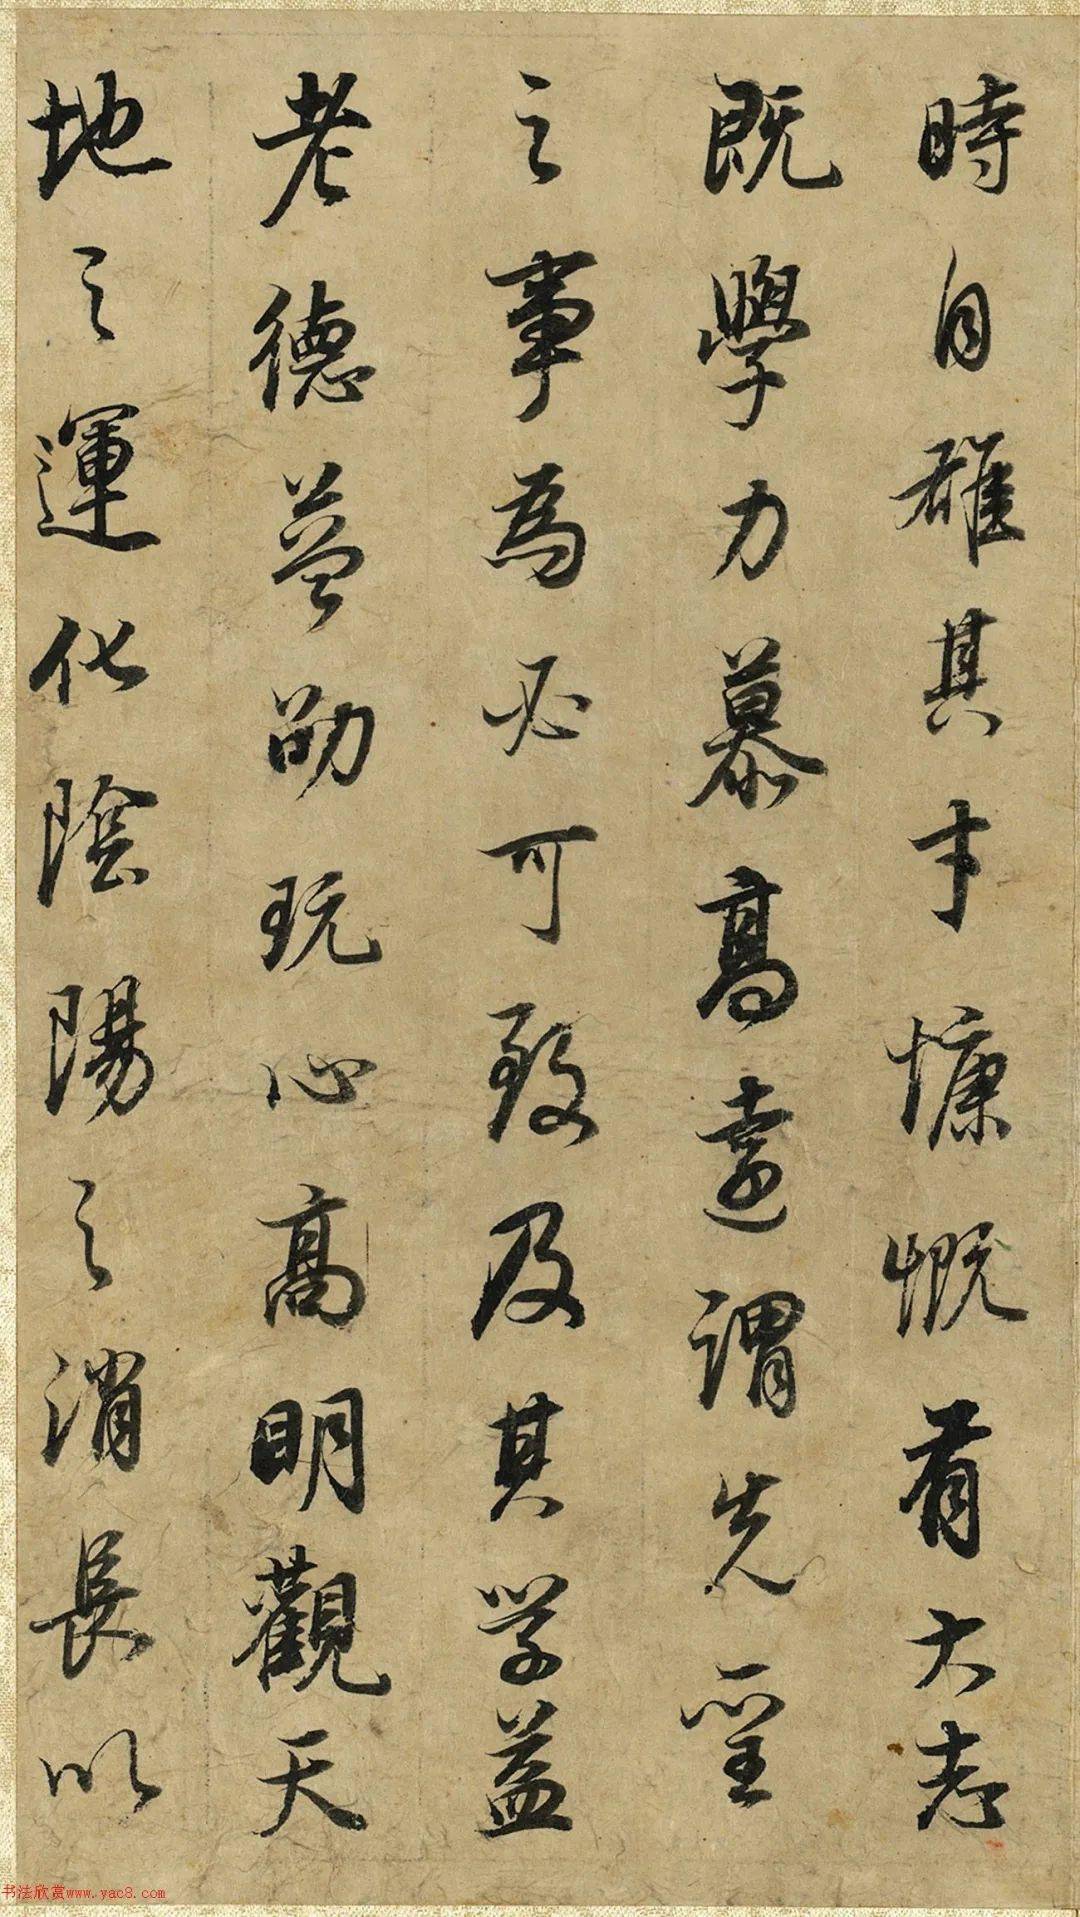 時自雄其才慷慨有大志
既學力慕高遠謂先聖
之事為必可致及其學益
老德益劭玩心高明觀天
地之運化陰陽之消長以
书法欣赏www.yac8.com